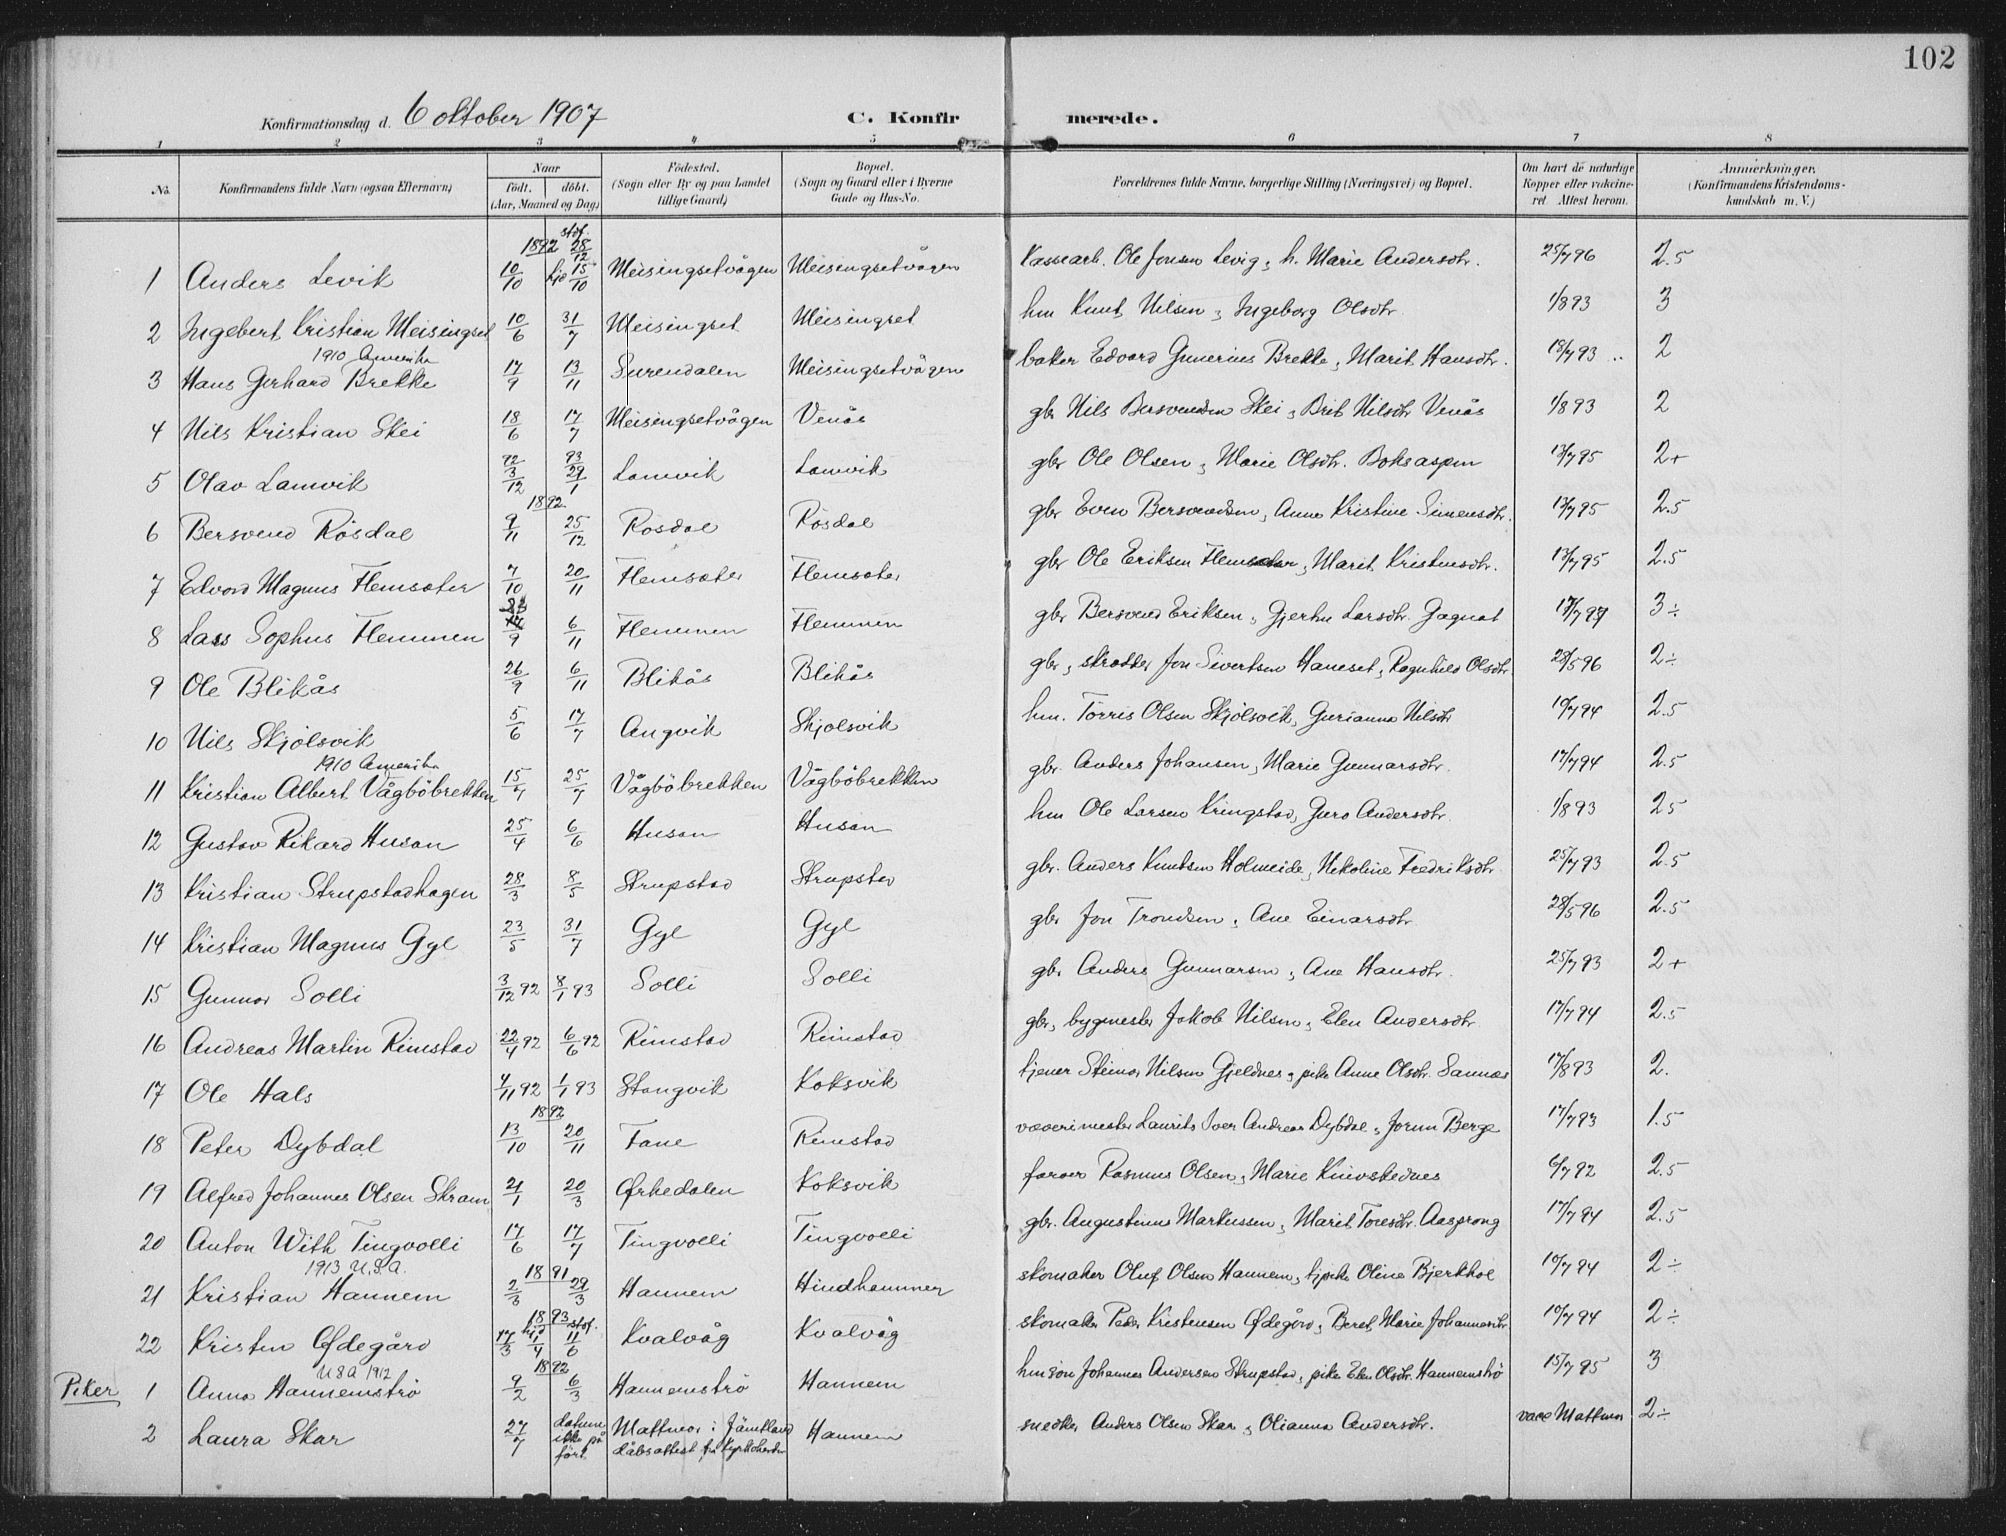 102
Konfirmationsdag d. 6 oktober 1907 C. Konfirmerede.
1 2 3 4 5 6 7 8
No. Konfirmandens fulde Navn (ogsaa Efternavn) Naar født, døbt. (Aar, Maaned og Dag) Fødested. (Sogn eller By og paa Landet tillige Gaard) Bopæl. (Sogn og Gaard eller i Byerne Gade og Hus-No. Forældrenes fulde Navne, borgerlige Stilling (Næringsvei) og Bopæl. Om havt de naturlige Kopper eller vakcineret. Attest herom. Anmærkninger. (Konfirmandens Kristendomskundskab m. V.)
1892 stdf. 28/12
1 Anders Levik 10/10 hjd 15/10 Meisingsetvågen Meisingsetvågen Kassearb. Ole Jonsen Levig, h. Marie Andersdtr. 25/7 96 2.5
2 Ingebert Kristian Meisingset 10/6 31/7 Meisingset Meisingset hm Knut Nilsen, Ingeborg Olsdtr. 1/8 93 3
1910 Amerika
3 Hans Gerhard Brekke 17/9 13/11 Surendalen Meisingsetvågen baker Edvard Gunerius Brekke, Marit Hansdtr. 18/7 93 .. 2
4 Nils Kristian Skei 18/6 17/7 Meisingsetvågen Venås gbr Nils Bersvendsen Skei, Brit Nilsdtr Venås 1/8 93 2
5 Olav Lamvik 92 3/12 93 29/1 Lamvik Lamvik gbr Ole Olsen, Marie Olsdtr. Boksaspen 13/7 95 2+
1892
6 Bersvend Rösdal 9/11 25/12 Rösdal Rösdal gbr Even Bersvendsen, Anne Kristine Simensdtr. 13/7 95 2.5
7 Edvard Magnus Flemsæter 7/10 20/11 Flemsæter Flemsæter gbr Ole Eriksen Flemsæter, Marit Kristensdtr. 13/7 95 2.5
8 Lars Sophus Flemmen 9 6/11 Flemmen Flemmen gbr Bersvend Eriksen, Gjertru Larsdtr. Gagnat 3÷
9 Ole Blikås 26/9 6/11 Blikås Blikås gbr, skrædder Jon Sivertsen Haneset, Ragnhild Olsdtr 28/5 96 2÷
10 Nils Skjölsvik 5/6 17/7 Angvik Skjölsvik hm. Torris Olsen Skjölsvik, Gurianna Nilsdtr 10/7 94 2.5
1910 Amerika
11 Kristian Albert Vågböbrekken 15/4 25/7 Vågböbrekken Vågböbrekken gbr. Anders Johansen, Marie Gunnarsdtr. 17/7 94 2.5
12 Gustav Rikard Husan 25/4 6/6 Husan Husan hm Ole Larsen Kringstad, Guro Andersdtr. 1/8 93 25
13 Kristian Strupstadhagen 28/3 8/5 Strupstad Strupstad gbr. Anders Knutsen Holmeide, Nekoline Fredriksdtr. 25/7 93 2.5
14 Kristian Magnus Gyl 23/5 31/7 Gyl Gyl gbr Jon Trondsen, Ane Einarsdtr. 28/5 96 2.5
15 Gunnar Solli 3/12 92 8/1 93 Solli Solli gbr Anders Gunnarsen, Ane Hansdtr. 25/7 93 2+
16 Andreas Martin Rimstad 22/4 92 6/6 92 Rimstad Rimstad gbr, bygmester Jakob Nilsen, Elen Andersdtr. 17/7 94 2.5
17 Ole Hals 4/11 92 1/1 93 Stangvik Koksvik tjener Steinar Nilsen Gjeldnes, pike Anne Olsdtr. Sannæs 17/8 93 2.
1892
18 Peter Dybdal 13/10 20/11 Fane Rimstad væverimester Laurits Iver Andreas Dybdal, Jorun Berge 17/7 93 1.5
19 Alfred Johannes Olsen Skram 21/1 20/3 Ørkedalen Koksvik farver Rasmus Olsen, Marie Knivskednes 6/7 92 2.5
20 Anton With Tingvolli 17/6 17/7 Tingvolli Tingvolli gbr. Augustinus Markussen, Marit Toresdtr. Aasprong 17/7 94 2.5
1913 U.S.A. 1891
21 Kristian Hannem 2/3 29/3 Hannem Hindhammer skomaker Oluf Olsen Hannem, tjpike Oline Bjerkhol 10/7 94 2÷
1893 stdf.
22 Kristen Ødegård 17/3 hjd 1/4 11/6 Kvalvåg Kvalvåg skomaker Peder Kristensen Ødegård, Beret Marie Johannesdtr 10/7 94 2÷
USA 1912 1892
Piker 1 Anna Hannemströ 9/2 6/3 Hannemströ Hannem hmsön Johannes Andersen Strupstad, pike Elen Olsdtr. Hannemströ 15/7 95 3
2 Laura Skar 27/7 datum ikke på fört Mattmar i Jämtland dåbsattest fra Kyrkoherden Hannem snedker Anders Olsen Skar, Olianna Andersdtr. vacc Mattmar 2÷